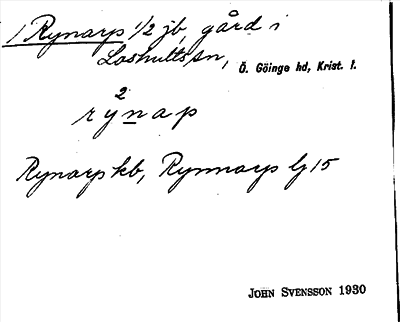 1 Rynarp 1/2 jb, gård i
Loshults sn, Ö. Göinge hd, Krist. l.
2
rynap
Rynarp kb, Rynnarps lj 15
JOHN SVENSSON 1930